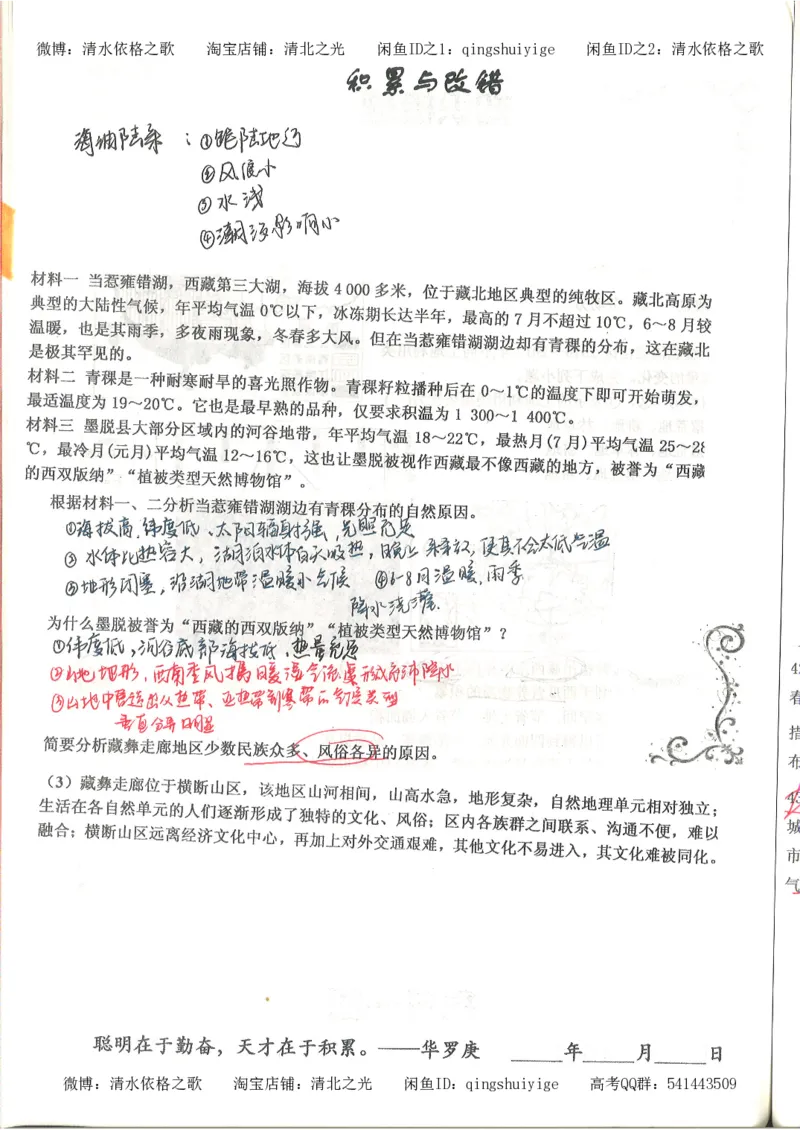 微博：清水依格之歌 淘宝店铺：清北之光 闲鱼ID之1：qingshuiyige 闲鱼ID之2：清水依格之歌
积累与改错
海油陆采：①距陆地近
②风浪小
③水浅
④潮汐影响小
材料一 当惹雍错湖，西藏第三大湖，海拔 4 000 多米，位于藏北地区典型的纯牧区。藏北高原为
典型的大陆性气候，年平均气温 0℃以下，冰冻期长达半年，最高的 7 月不超过 10℃，6～8 月较
温暖，也是其雨季，多夜雨现象，冬春多大风。但在当惹雍错湖湖边却有青稞的分布，这在藏北
是极其罕见的。
材料二 青稞是一种耐寒耐旱的喜光照作物。青稞籽粒播种后在 0～1℃的温度下即可开始萌发，
最适温度为 19～20℃。它也是最早熟的品种，仅要求积温为 1 300～1 400℃。
材料三 墨脱县大部分区域内的河谷地带，年平均气温 18～22℃，最热月(7 月)平均气温 25～28
℃，最冷月(元月)平均气温 12～16℃，这也让墨脱被视作西藏最不像西藏的地方，被誉为“西藏
的西双版纳”“植被类型天然博物馆”。
根据材料一、二分析当惹雍错湖湖边有青稞分布的自然原因。
①海拔高，纬度低、太阳辐射强，光照充足
②水体比热容大，湖泊水体白天吸热，晚上释放，使其不会太低气温
③地形闭塞，沿湖地带温暖小气候 ④6-8月温暖，雨季
降水浇灌.
为什么墨脱被誉为“西藏的西双版纳”“植被类型天然博物馆”？
①纬度低，河谷底部海拔低，热量充足
②山地地形，西南季风携暖湿气流爬坡形成充沛降水
③山地中
垂直分异明显
简要分析藏彝走廊地区少数民族众多、风俗各异的原因。
（3）藏彝走廊位于横断山区，该地区山河相间，山高水急，地形复杂，自然地理单元相对独立；
生活在各自然单元的人们逐渐形成了独特的文化、风俗；区内各族群之间联系、沟通不便，难以
融合；横断山区远离经济文化中心，再加上对外交通艰难，其他文化不易进入，其文化难被同化。
聪明在于勤奋，天才在于积累。——华罗庚 ____年____月____日
微博：清水依格之歌 淘宝店铺：清北之光 闲鱼ID：qingshuiyige 高考QQ群：541443509